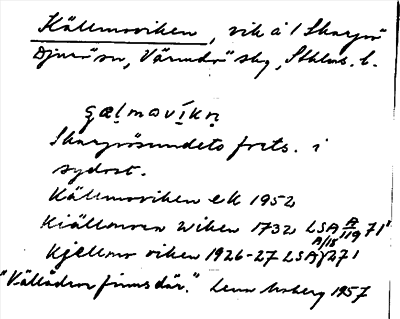 Källmoviken, vik å / Skarpö
Djurö sn, Värmdö skg, Sthlms l.
Skarpösundets forts. i
sydost.
Källmoviken ek 1952
Kiällmoren Wiken 1732 LSA A/119 71'
Kjellmo viken 1926-27 LSA A/18 271
"Källådror finns där." Lenn Moberg 1957